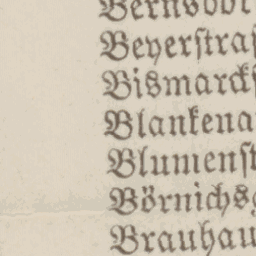 Bernsdor
Beyerſtraſ
Bismarckſ
Blankena
Blumenſt
Börnichsg
Brauhau